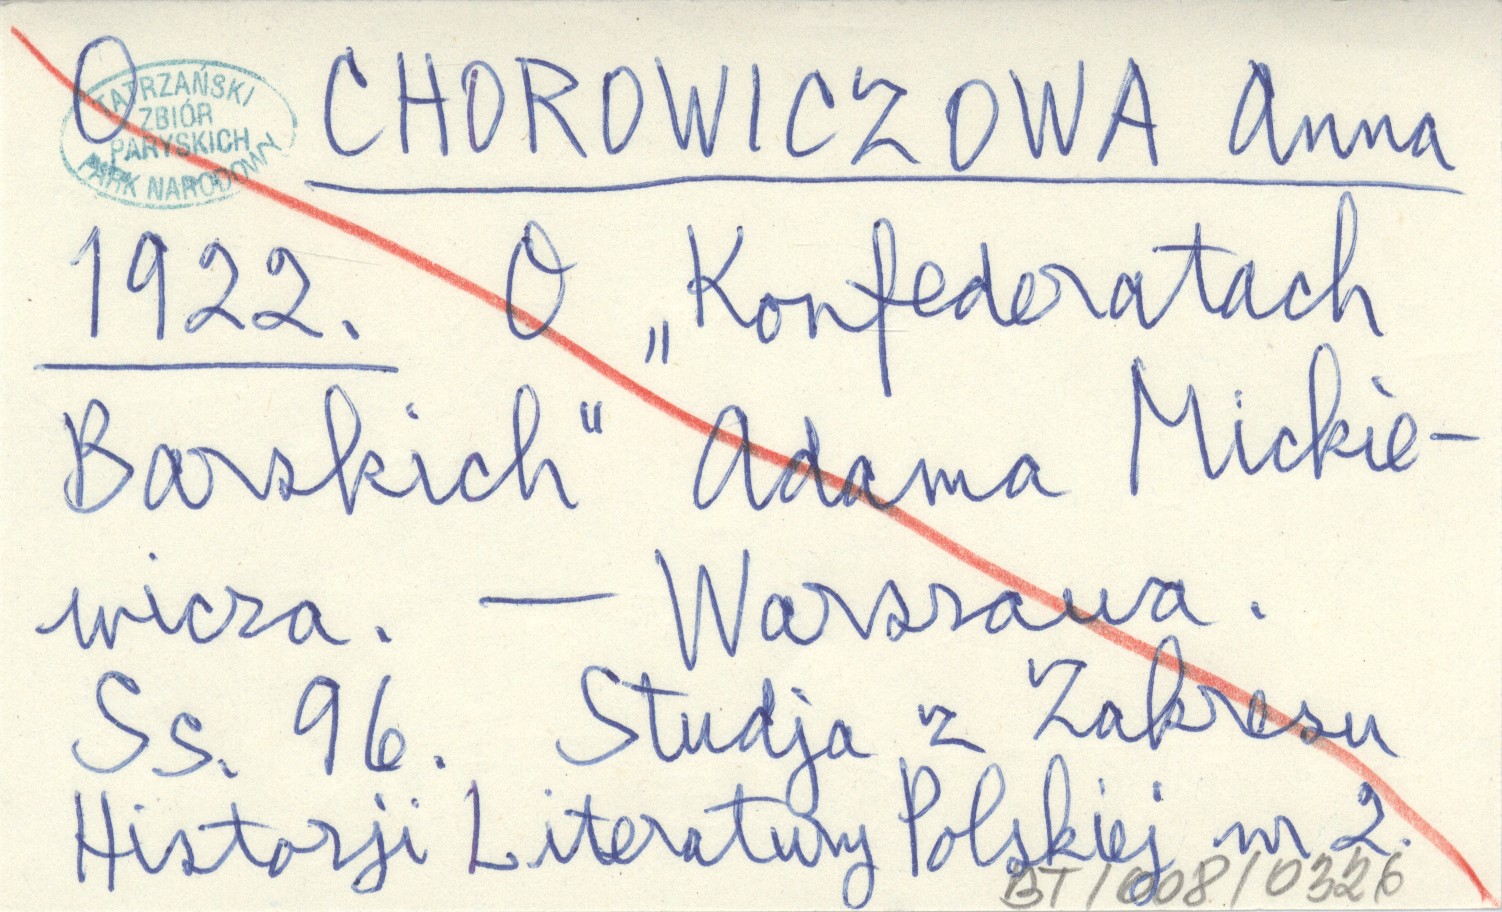 O CHOROWICZOWA Anna
TATRZAŃSKI
ZBIÓR
PARYSKICH
PARK NARODOWY
1922. O „Konfederatach
Barskich" Adama Mickie-
wicza. — Warszawa.
Ss. 96. Studja z Zakresu
Historji Literatury Polskiej nr 2.
BT/008/0326